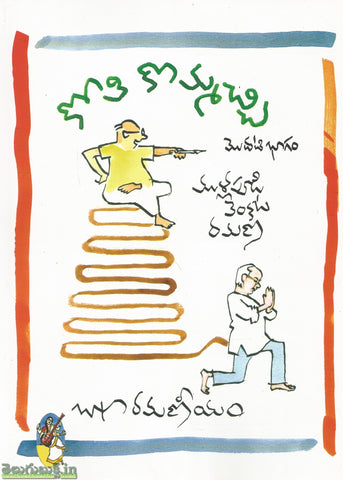 కోతి కొమ్మచ్చి
మొదటి భాగం
ముళ్లపూడి
వెంకట
రమణ
బాపు రమణీయం
తెలుగుబుక్.in